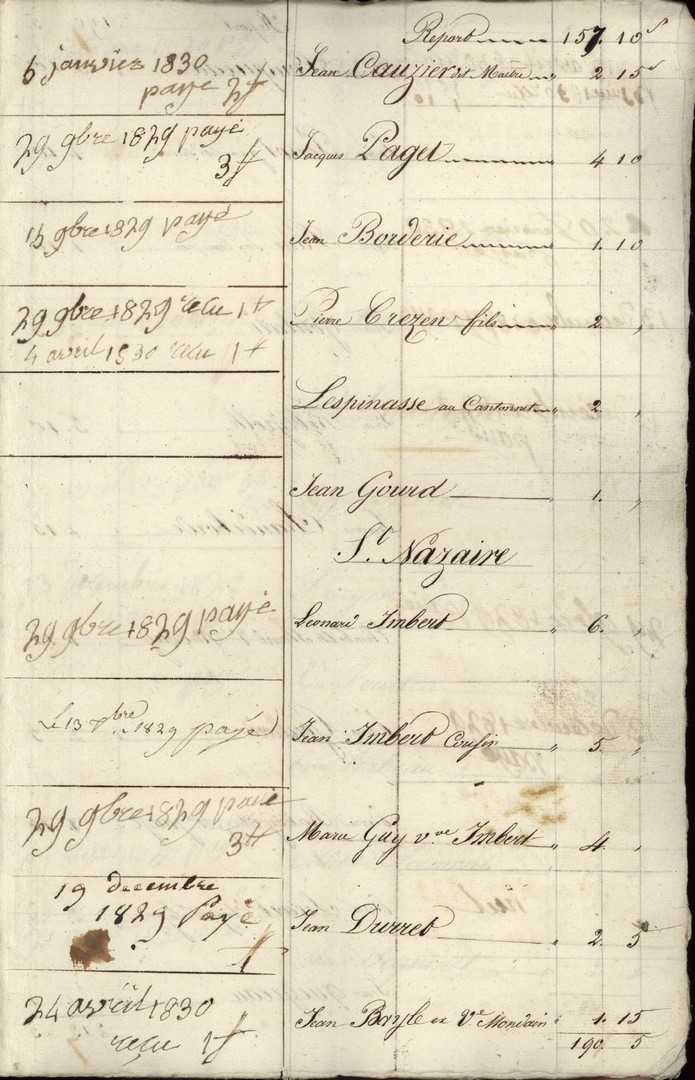 Report 157. 10 s
6 janvier 1830
paye 2 f
Jean Cauzier dit Maitre " 2. 15 s
29 9bre 1829 payé
3 f
Jacques Paget 4. 10
15 9bre 1829 payé
Jean Borderie 1. 10
29 9bre 1829 recu 1 f
4 avril 1830 recu 1 f
Pierre Crezen fils " 2. "
Lespinasse au Cantonnet " 2. "
Jean Gourd " 1. "
St. Nazaire
29 9bre 1829 payé
Leonard Imbert " 6. "
Le 13 bre 1829 payé
Jean Imbert Cousin " 5. "
29 9bre 1829 payé
3 f
Marie Guy ve. Imbert " 4. "
19 decembre
1829 Payé
Jean Durret " 2. 5
24 avril 1830
recu 1 f
Jean Bayle et Ve. Mondain " 1. 15
190 5